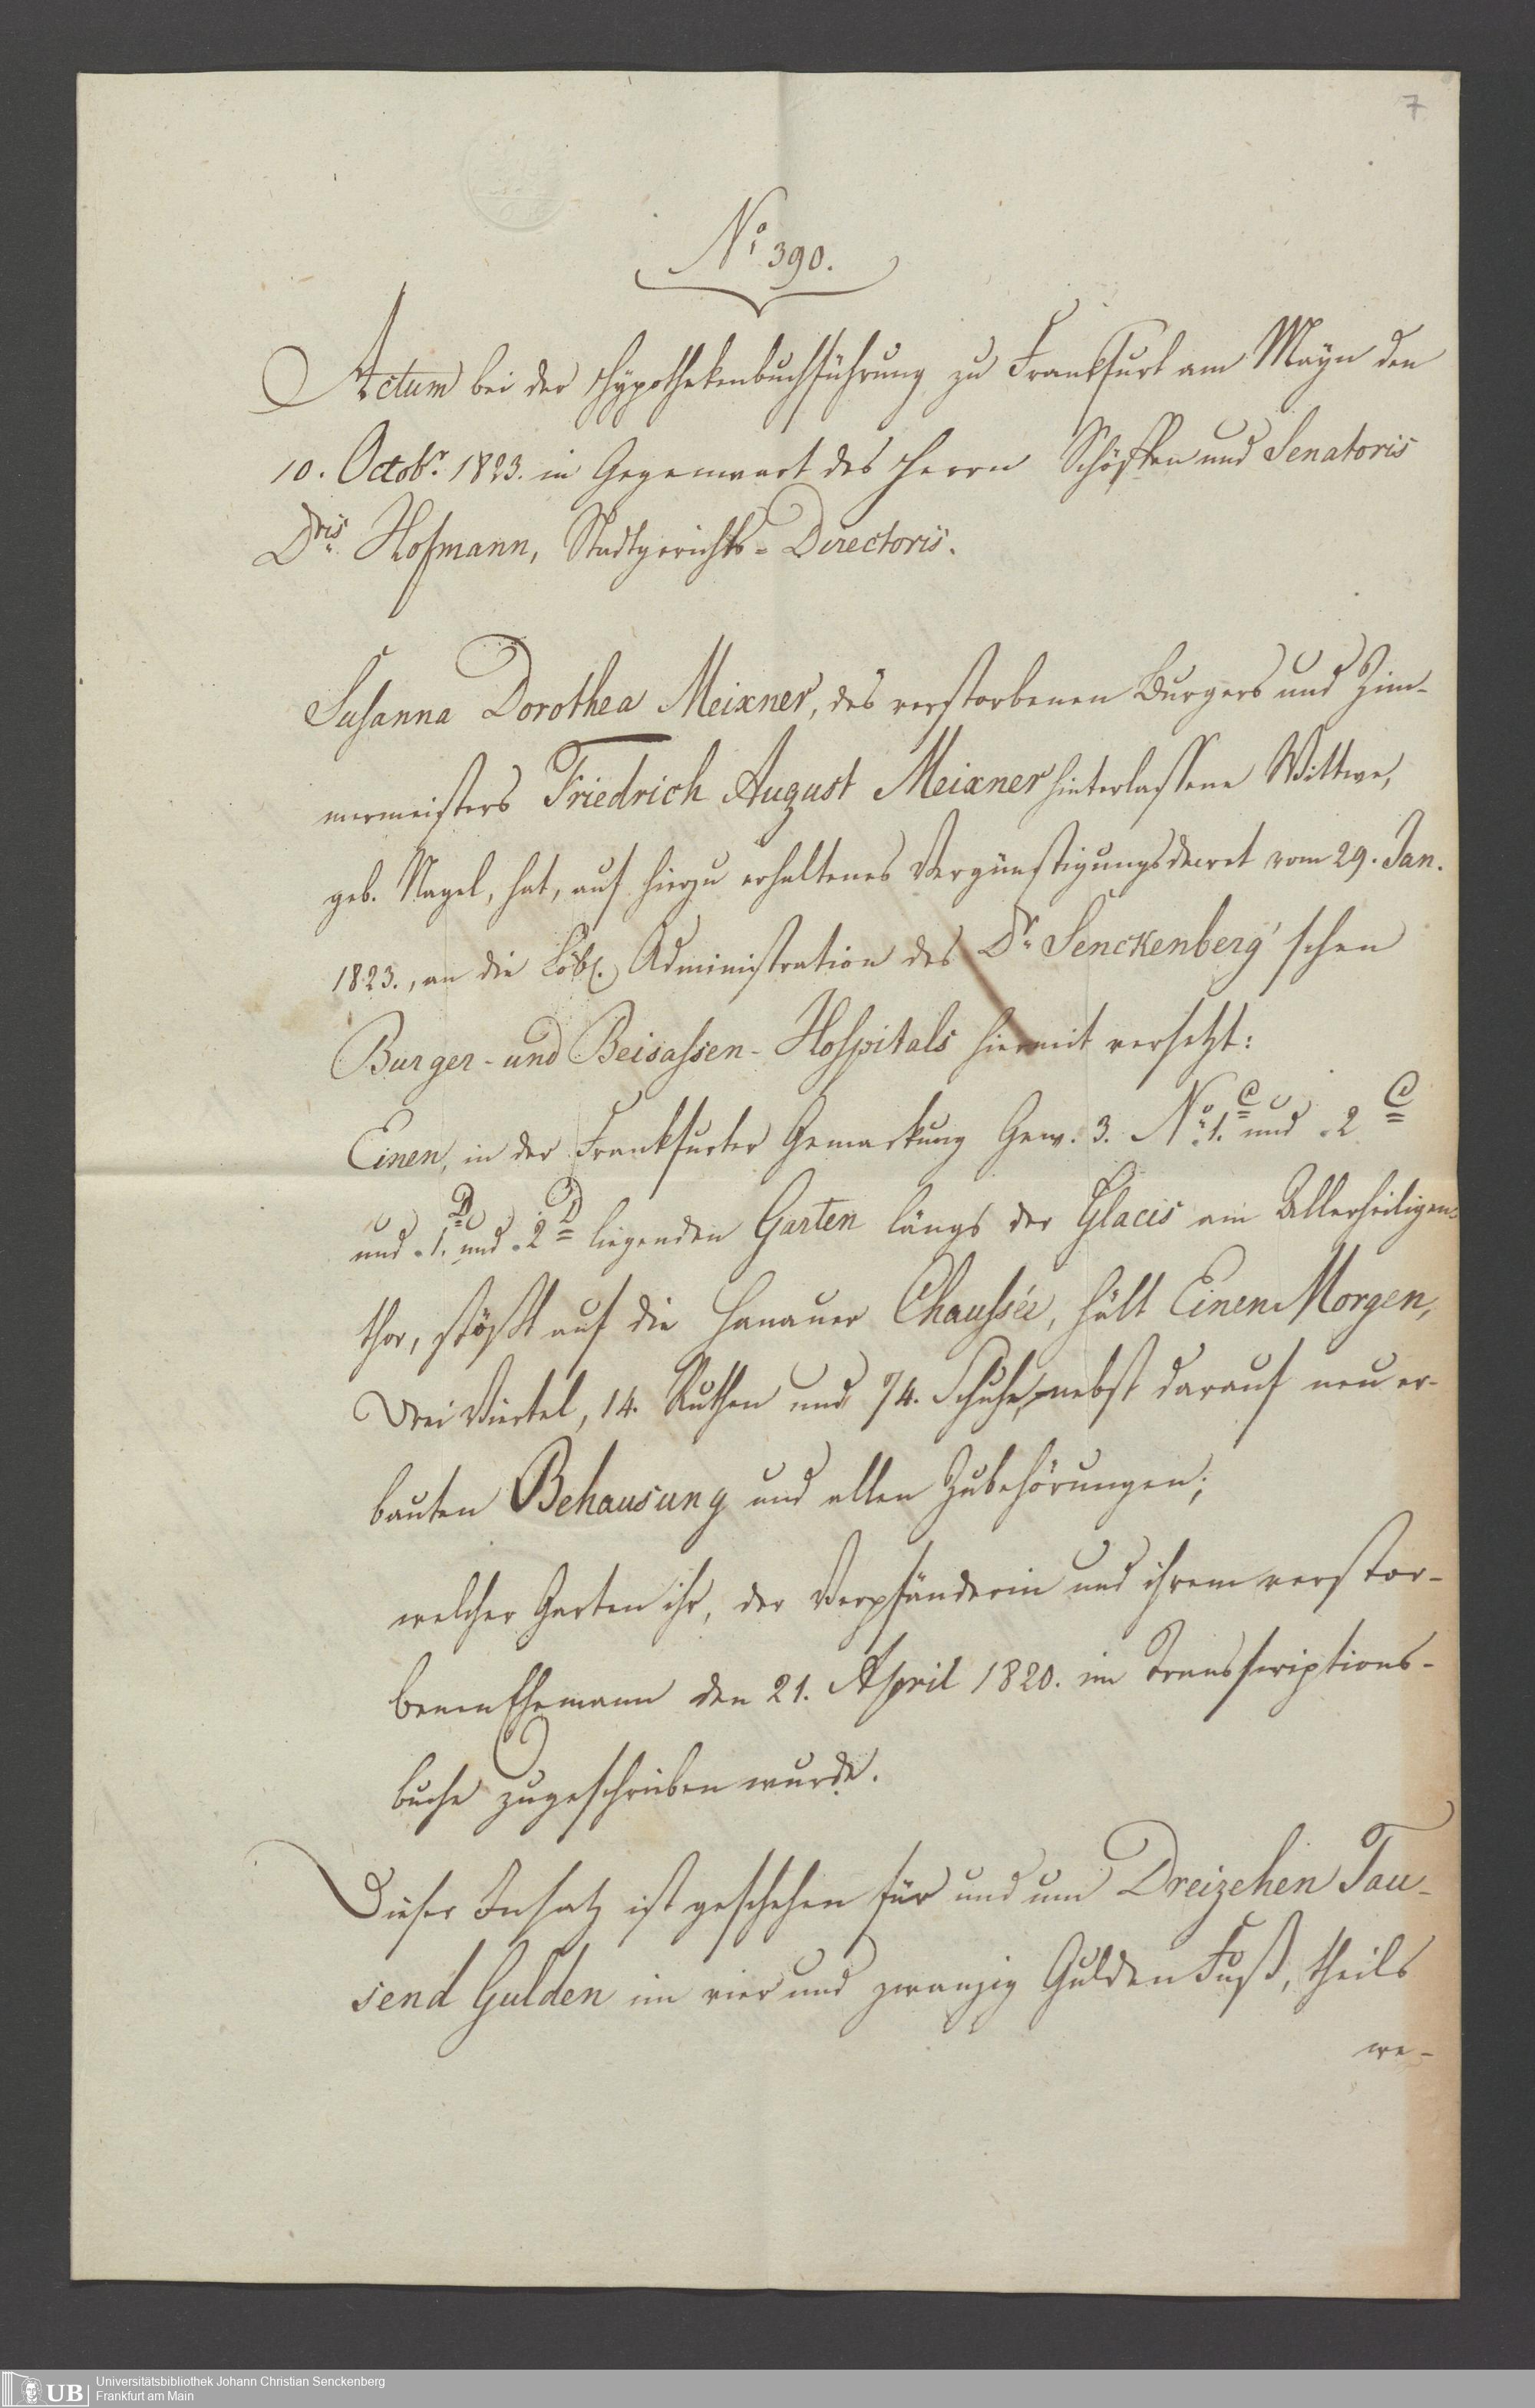 7
No 390.
Actum bei der Hypothekenbuchführung zu Frankfurt am Mayn den
10. Octobr. 1823. in Gegenwart des Herrn Schöffen und Senatoris
Dris Hofmann, Stadtgerichts-Directoris.
Susanna Dorothea Meixner, des verstorbenen Burgers und Zim-
mermeisters Friedrich August Meixner hinterlassene Wittwe,
geb. Nagel, hat, auf hierzu erhaltenes Vergünstigungsdecret vom 29. Jan.
1823., an die Löbl. Administration des Dr. Senckenberg'schen
Burger- und Beisassen-Hospitals hiermit versetzt:
Einen, in der Frankfurter Gemarkung Gew. 3. No. 1. C und 2 C
und 1. D und 2 D liegenden Garten längs der Glacis am Allerheiligen-
thor, stößt auf die Hanauer Chaussée, hält Einen Morgen,
Drei Viertel, 14. Ruthen und 74. Schuhe, nebst darauf neu er-
bauten Behausung und allen Zubehörungen;
welcher Garten ihr, der Verpfänderin und ihrem verstor-
benen Ehemann den 21. April 1820. im Transscriptions-
buche zugeschrieben wurde.
Dieser Insatz ist geschehen für und um Dreizehen Tau-
send Gulden im vier und zwanzig Gulden Fuß, theils
we-
UB
Universitätsbibliothek Johann Christian Senckenberg
Frankfurt am Main